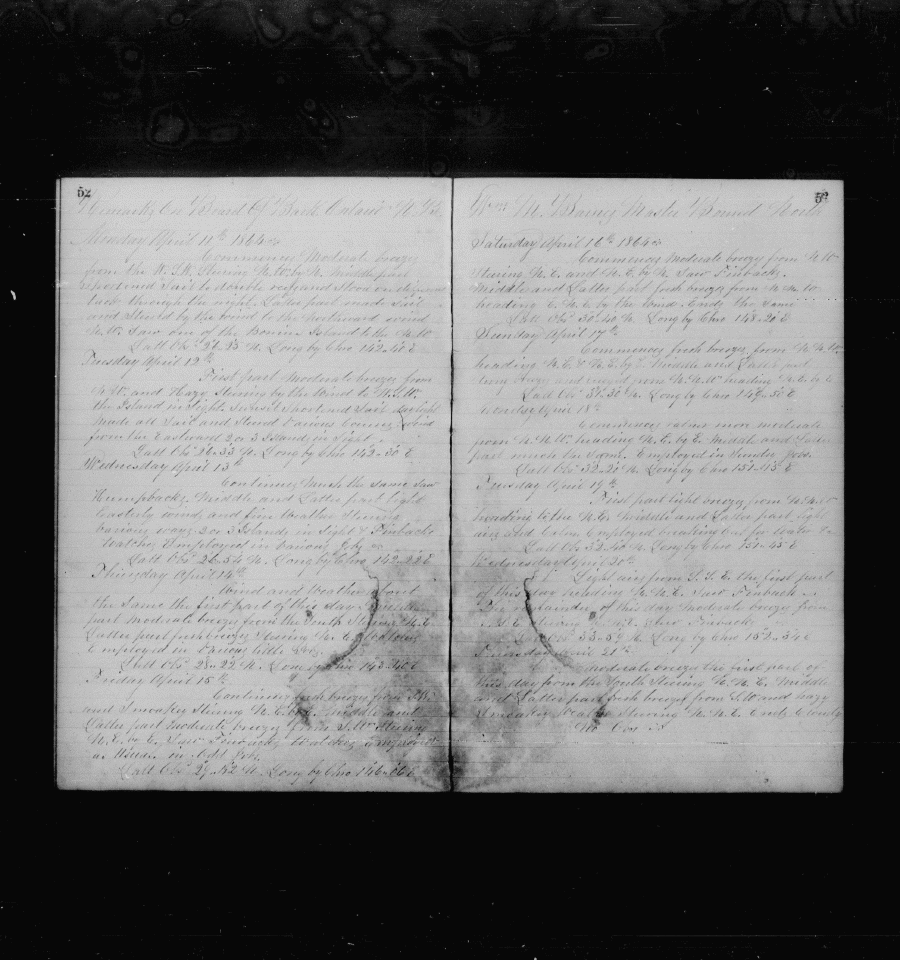 52
Remarks On Board Of Bark Catawi N. B.
Monday April 11th 1864
Commences Moderate breezy
from the W.S.W. Stearing N.W. by N. Middle part
shortened Sail to double reefs and Stood on different
tacks through the night. Latter part made Sail
and Steered by the wind to the Northward wind
N.W. Saw one of the Bonins Island to the N.W.
Latt Obs 26-25 N. Long by Chro 142-40 E
Tuesday April 12th
First part Moderate breezes from
and Hazy Stearing by the wind to W.S.W.
the Island in Sight. Sunset Shortened Sail daylight
Made all Sail and Steered Various Courses wind
from the Eastward 2 or 3 Islands in Sight
Latt Obs 26-33 N. Long by Chro 142-30 E
Wednesday April 13th
Continues Much the same Saw
Humpbacks. Middle and Latter part light
Easterly wind, and fine Weather Stearing
Various ways 2 or 3 Islands in Sight & Finbacks
Watches Employed in Various Jobs
Latt Obs 26-34 N. Long by Chro 142-22 E
Thursday April 14th
Wind and Weather about
the Same the first part of this day Middle
part Moderate breezes from the South Stearing N.E.
Latter part fresh breezes Stearing N.E.
Employed in Various little Jobs
Latt Obs 28-22 N. Long by Chro 143-40 E
Friday April 15th
Continues fresh breezes from S.W.
and Smoakey Stearing N.E. by E. Middle and
Latter part Moderate breezes from S.W. Stearing
N.E. by E. Saw Finbacks Watches Employed
as Usual in Odd Jobs.
Latt Obs 29-52 N. Long by Chro 146-06 E
Wm M. Barnes Master Bound North
Saturday April 16th 1864
Commences Moderate breezes from N.W.
Stearing N.E. and N.E. by N. Saw Finbacks.
Middle and Latter part fresh breezes from N.N.W.
heading E.N.E. by the Wind. Ends the Same
Latt Obs 30-40 N. Long by Chro 148-20 E
Sunday April 17th
Commences fresh breezes from N.N.W.
heading N.E. & N.E. by E. Middle and Latter part
from N.N.W. heading N.E. by E
Latt Obs 31-30 N. Long by Chro 149-50 E
Monday April 18th
Commences calms more moderate
from N.N.W. heading N.E. by E. Middle and Latter
part much the same. Employed in Sundrie Jobs.
Latt Obs 32-20 N. Long by Chro 151-15 E
Tuesday April 19th
First part light breezes from N.N.W.
heading to the N.E. Middle and Latter part light
airs and Calm Employed breaking out for water &c
Latt Obs 32-40 N. Long by Chro 151-45 E
Wednesday April 20th
Light airs from S.S.E. the first part
of this day heading N.N.E. Saw Finback
The remainder of this day Moderate breezes from
Stearing N.N.E. Saw Finbacks
Latt Obs 33-59 N. Long by Chro 152-34 E
Thursday April 21st
Moderate breezes the first part of
this day from the South Stearing N.N.E. Middle
and Latter part fresh breezes from S.W. and hazy
Smoakey Weather Stearing N.N.E. Ends Cloudy
No Obs